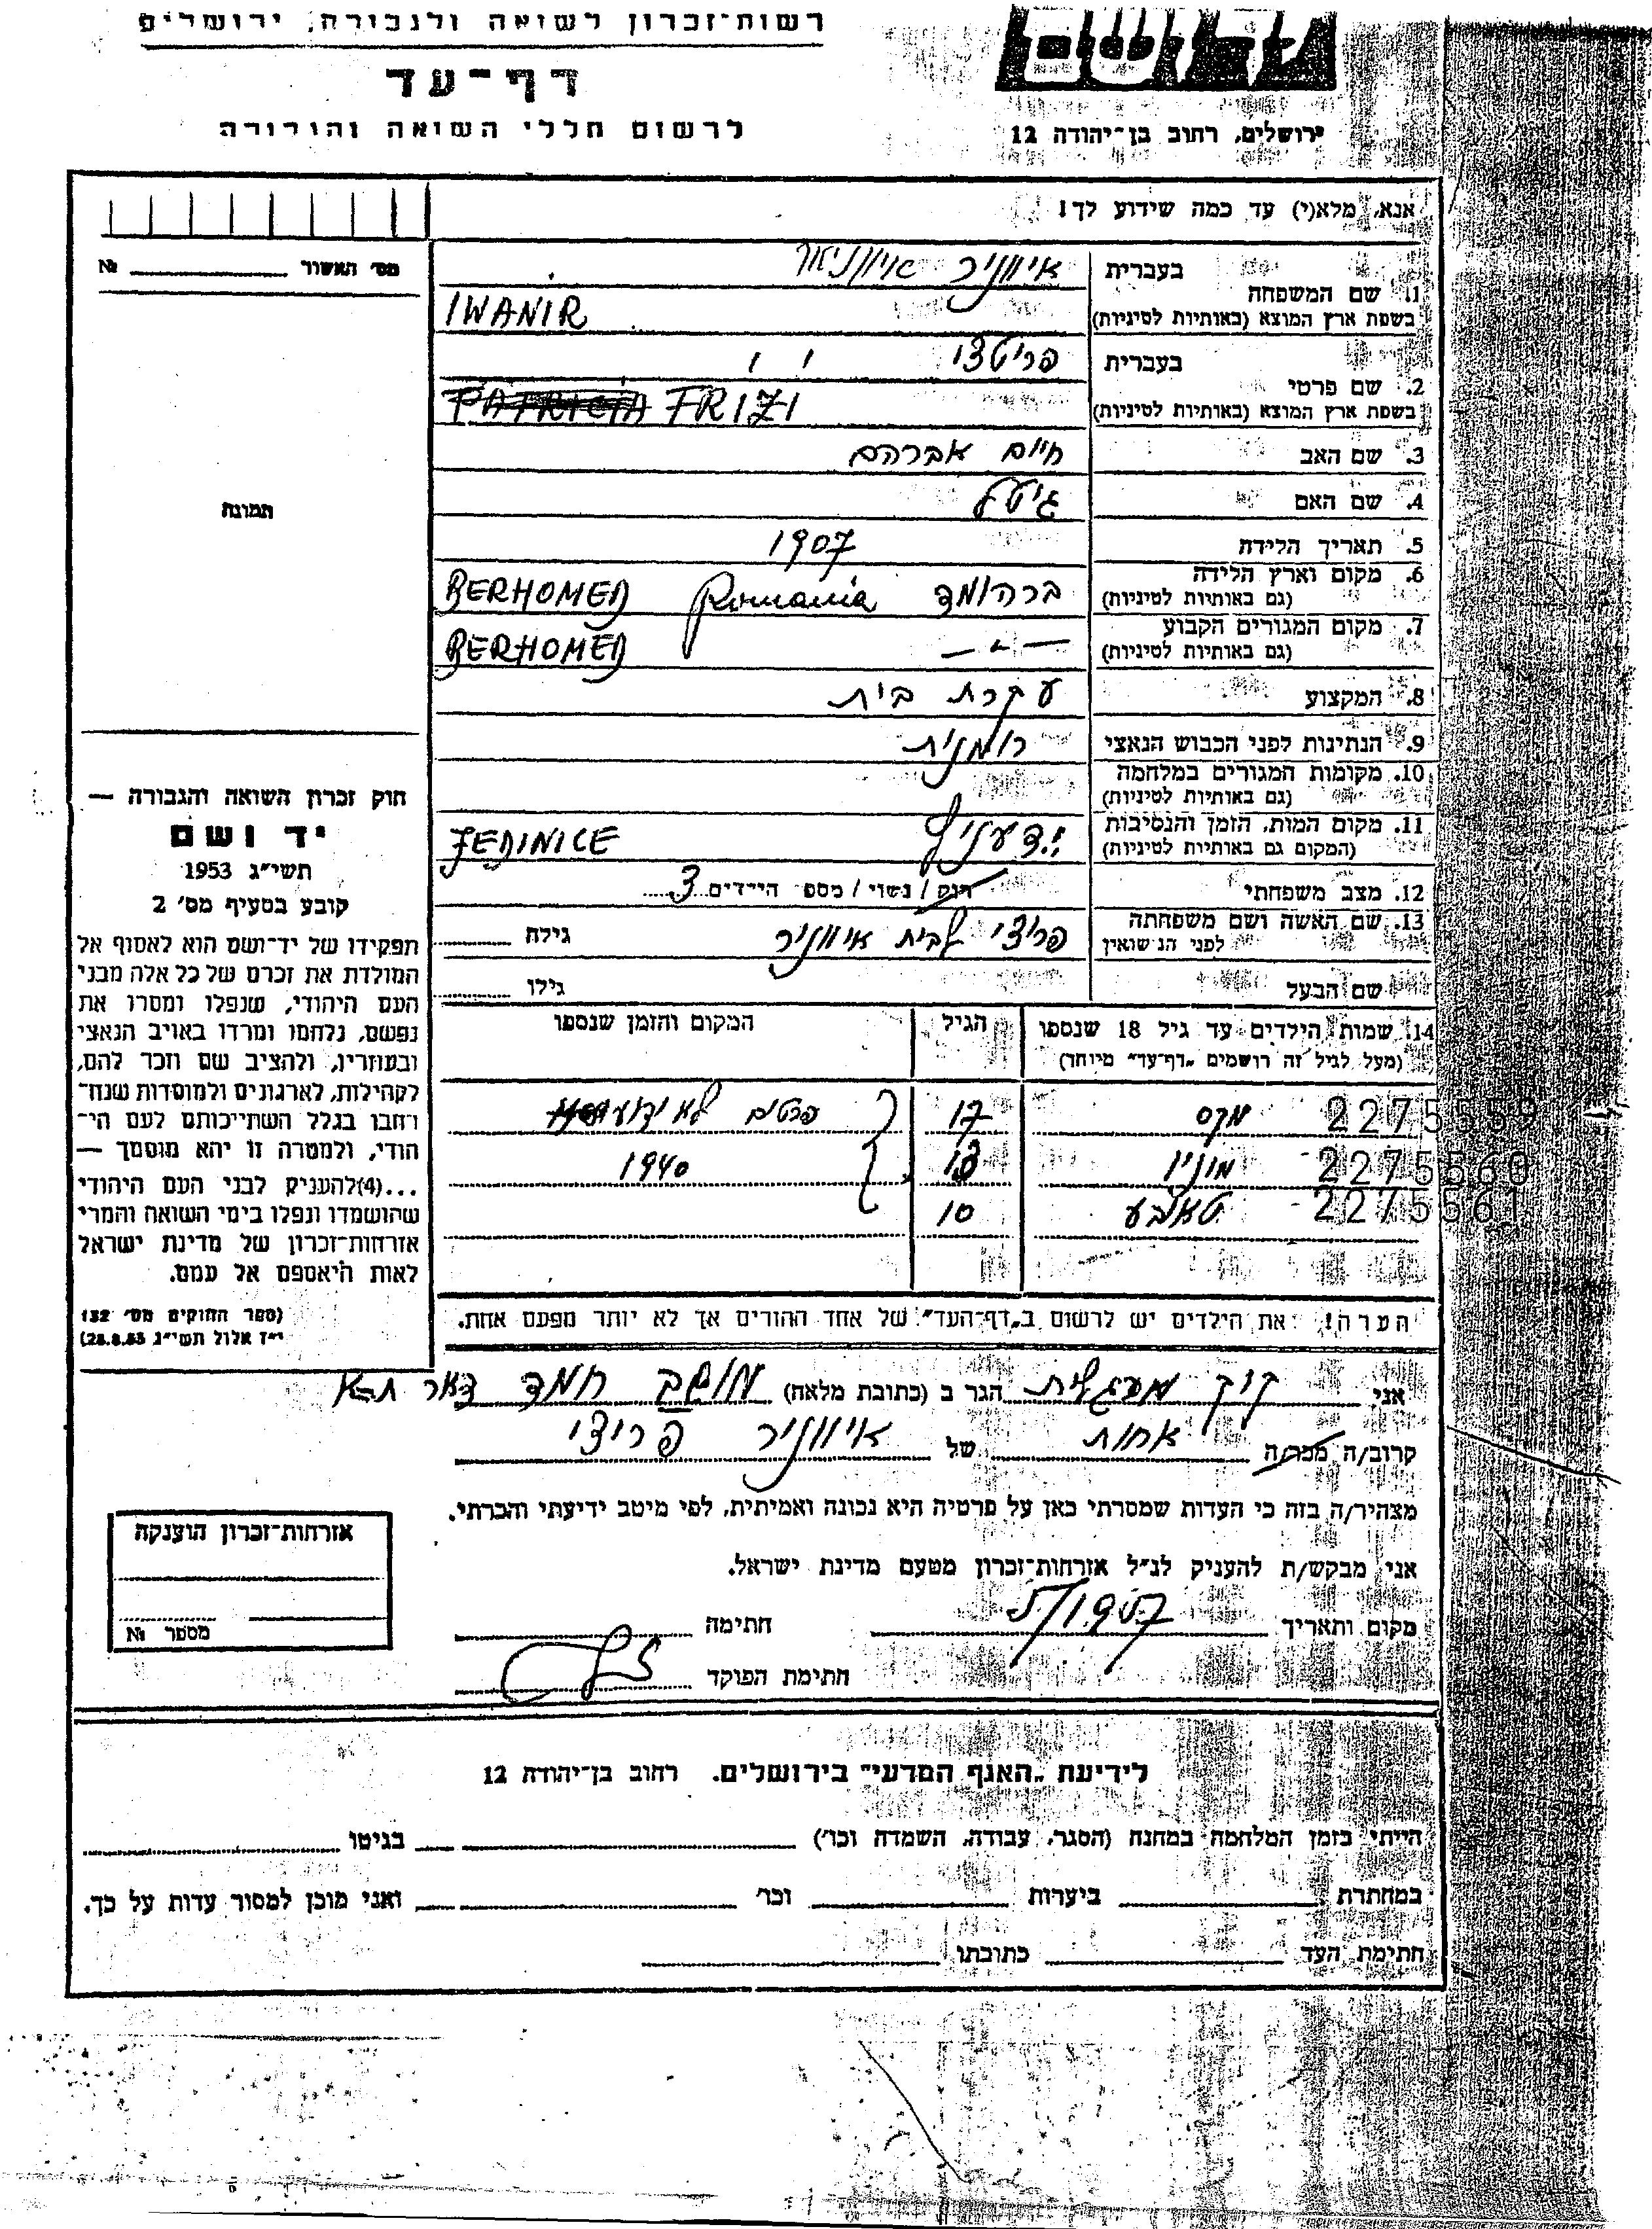 רשות־זכרון לשואה ולגבורה, ירושלים
דף־עד
לרשום חללי השואה והגבורה
ירושלים, רחוב בן־יהודה 12
אנא, מלא(י) עד כמה שידוע לך!
מס׳ האשור № 
1. שם המשפחה
בעברית איווניר
בשפת ארץ המוצא (באותיות לטיניות) IWANIR
2. שם פרטי
בעברית פריטצי
בשפת ארץ המוצא (באותיות לטיניות) PATRICIA FRIZI
3. שם האב חיים אברהם
4. שם האם גיטל
5. תאריך הלידה 1907
6. מקום וארץ הלידה ברהומד Romania BERHOMED
(גם באותיות לטיניות)
7. מקום המגורים הקבוע —״— BERHOMED
(גם באותיות לטיניות)
8. המקצוע עקרת בית
9. הנתינות לפני הכבוש הנאצי רומנית
10. מקומות המגורים במלחמה
(גם באותיות לטיניות)
11. מקום המות, הזמן והנסיבות JEDINICE
(המקום גם באותיות לטיניות)
12. מצב משפחתי רווק / נשוי / מספר הילדים 3
13. שם האשה ושם משפחתה
לפני הנישואין פריצי לבית איווניר גילה
שם הבעל גילו
14. שמות הילדים עד גיל 18 שנספו הגיל המקום והזמן שנספו
(מעל לגיל זה רושמים „דף־עד״ מיוחד)
2275559 מקס 17 פרטים לא
2275560 מוניו 13 1940
2275561 10
הערה! את הילדים יש לרשום ב„דף־העד״ של אחד ההורים אך לא יותר מפעם אחת.
תמונה
חוק זכרון השואה והגבורה —
יד ושם
תשי״ג 1953
קובע בסעיף מס׳ 2
תפקידו של יד־ושם הוא לאסוף אל
המולדת את זכרם של כל אלה מבני
העם היהודי, שנפלו ומסרו את
נפשם, נלחמו ומרדו באויב הנאצי
ובעוזריו, ולהציב שם וזכר להם,
לקהילות, לארגונים ולמוסדות שנח־
רבו בגלל השתייכותם לעם הי־
הודי, ולמטרה זו יהא מוסמך —
...(4) להעניק לבני העם היהודי
שהושמדו ונפלו בימי השואה והמרי
אזרחות־זכרון של מדינת ישראל
לאות היאספם אל עמם.
(ספר החוקים מס׳ 132
י״ז אלול תשי״ג 28.8.53)
אני קוק הגר ב (כתובת מלאה) מושב חמד דאר ת־א
קרוב/ה מכר/ה אחות של איווניר פריצי
מצהיר/ה בזה כי העדות שמסרתי כאן על פרטיה היא נכונה ואמיתית, לפי מיטב ידיעתי והכרתי.
אני מבקש/ת להעניק לנ״ל אזרחות־זכרון מטעם מדינת ישראל.
מקום ותאריך חתימה
חתימת הפוקד
אזרחות־זכרון הוענקה
מספר №
לידיעת „האגף המדעי״ בירושלים, רחוב בן־יהודה 12
הייתי בזמן המלחמה במחנה (הסגר, עבודה, השמדה וכו׳) בגיטו
במחתרת ביערות וכו׳ ואני מוכן למסור עדות על כך.
חתימת העד כתובתו